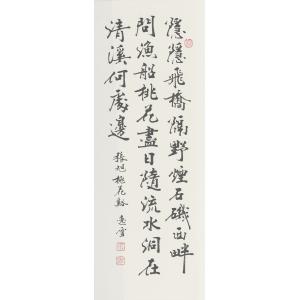 隱隱飛橋隔野煙石磯西畔
問漁船桃花盡日隨流水洞在
清溪何處邊
張旭桃花谿